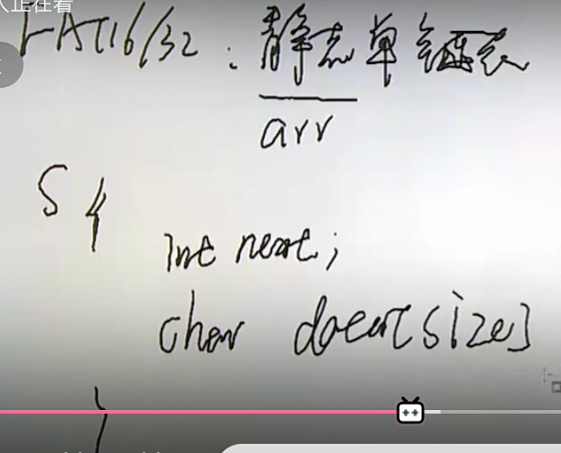 人正在看
FAT16/32：静态单链表
arr
S {
int next;
char data[size]
}